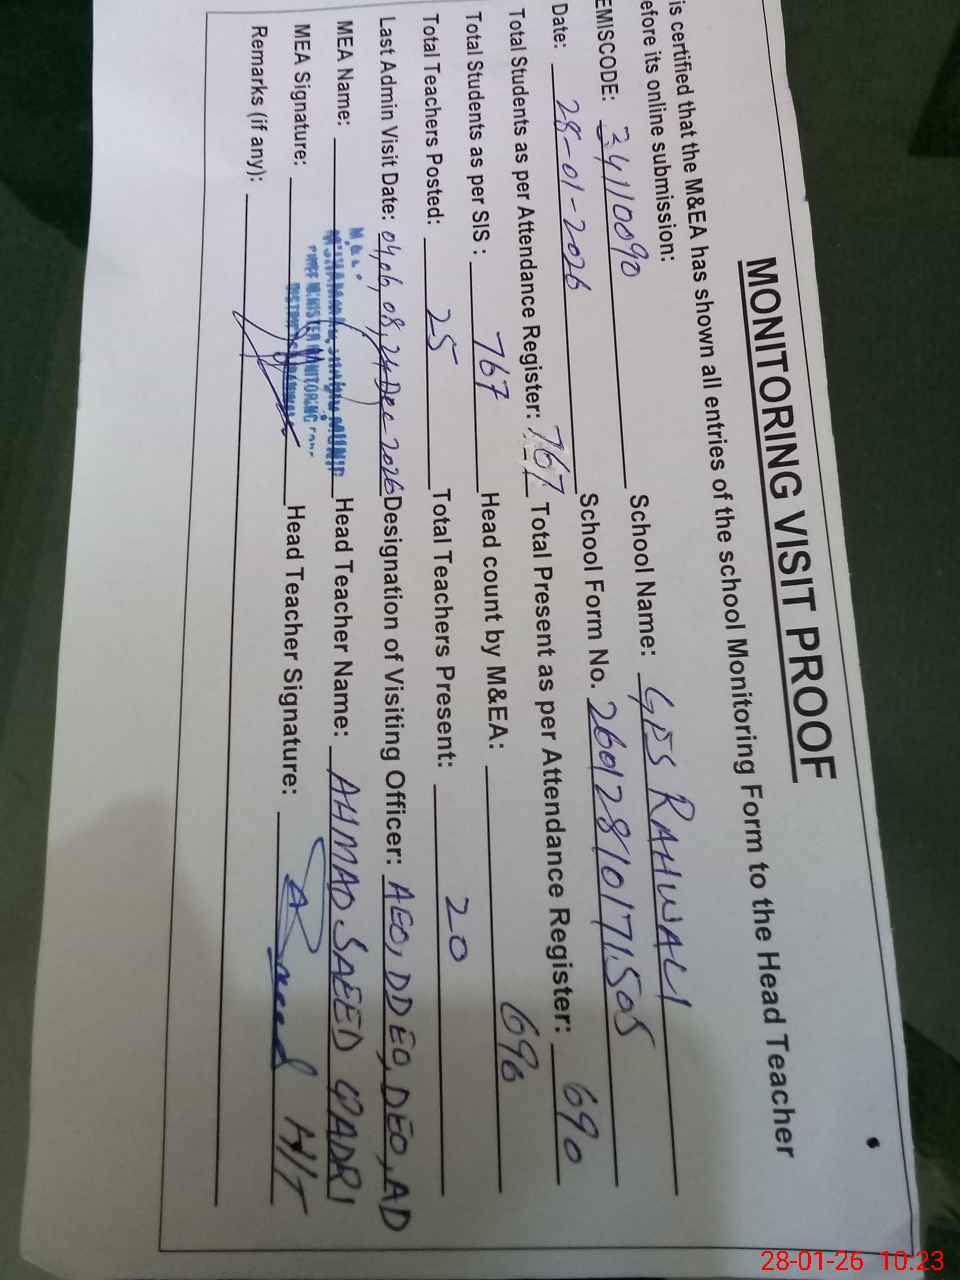 MONITORING VISIT PROOF
is certified that the M&EA has shown all entries of the school Monitoring Form to the Head Teacher
efore its online submission:
EMISCODE: 34110090 School Name: GPS RAHWALI
Date: 28-01-2026 School Form No. 26012810171505
Total Students as per Attendance Register: 767 Total Present as per Attendance Register: 690
Total Students as per SIS: 767 Head count by M&EA: 690
Total Teachers Posted: 25 Total Teachers Present: 20
Last Admin Visit Date: 04,06,08,24 Dec 2026 Designation of Visiting Officer: AEO, DDEO, DEO, AD
MEA Name: Head Teacher Name: AHMAD SAEED QADRI
MEA Signature: Head Teacher Signature: H/T
Remarks (if any):
28-01-26 10:23